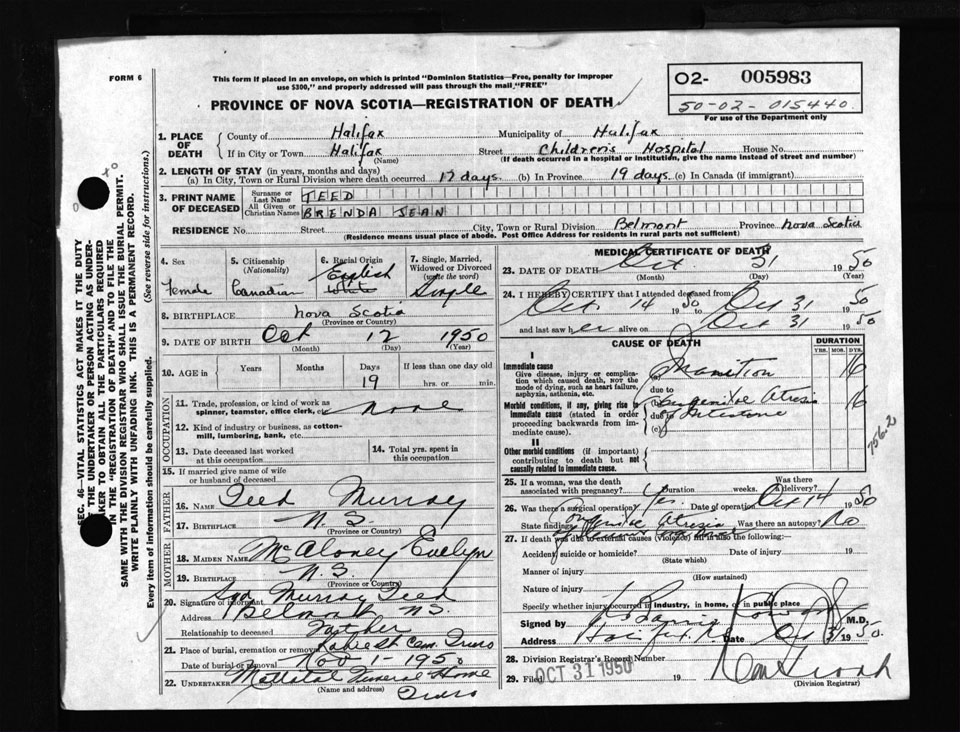 FORM 6
This form if placed in an envelope, on which is printed "Dominion Statistics—Free, penalty for improper
use $300," and properly addressed will pass through the mail "FREE"
02- 005983
50-02-015440.
For use of the Department only
PROVINCE OF NOVA SCOTIA—REGISTRATION OF DEATH
1. PLACE OF DEATH
County of Halifax Municipality of Halifax
If in City or Town Halifax (Name) Street Children's Hospital House No.
(If death occurred in a hospital or institution, give the name instead of street and number)
2. LENGTH OF STAY (in years, months and days)
(a) In City, Town or Rural Division where death occurred 17 days. (b) In Province 19 days. (c) In Canada (if immigrant)
3. PRINT NAME OF DECEASED
Surname or Last Name TEED
All Given or Christian Names BRENDA JEAN
RESIDENCE No. Street City, Town or Rural Division Belmont Province Nova Scotia
(Residence means usual place of abode. Post Office Address for residents in rural parts not sufficient)
4. Sex Female
5. Citizenship (Nationality) Canadian
6. Racial Origin English White
7. Single, Married, Widowed or Divorced (write the word) Single
8. BIRTHPLACE Nova Scotia
(Province or Country)
9. DATE OF BIRTH Oct 12 1950
(Month) (Day) (Year)
10. AGE in Years Months Days 19 If less than one day old hrs. or min.
OCCUPATION
11. Trade, profession, or kind of work as
spinner, teamster, office clerk, etc. none
12. Kind of industry or business, as cotton-
mill, lumbering, bank, etc.
13. Date deceased last worked
at this occupation
14. Total yrs. spent in
this occupation
15. If married give name of wife
or husband of deceased
FATHER
16. NAME Teed Murray
17. BIRTHPLACE N. S.
(Province or Country)
MOTHER
18. MAIDEN NAME McAloney Evelyn
19. BIRTHPLACE N. S.
(Province or Country)
20. Signature of informant Sgd Murray Teed
Address Belmont N.S.
Relationship to deceased Father
21. Place of burial, cremation or removal Cem. Truro
Date of burial or removal Nov 1 - 1950
22. UNDERTAKER Funeral Home
(Name and address) Truro
MEDICAL CERTIFICATE OF DEATH
23. DATE OF DEATH Oct. 31 1950
(Month) (Day)
24. I HEREBY CERTIFY that I attended deceased from:
Oct. 14 1950 to Oct 31 1950
and last saw her alive on Oct 31 1950
CAUSE OF DEATH
DURATION
YRS. MOS. DYS.
I
Immediate cause
Give disease, injury or complica-
tion which caused death, NOT the
mode of dying, such as heart failure,
asphyxia, asthenia, etc.
(a) Inanition 16
due to
Morbid conditions, if any, giving rise to
immediate cause (stated in order
proceeding backwards from im-
mediate cause).
(b) Congenital Atresia 16
due to Intestine
(c)
II
Other morbid conditions (if important)
contributing to death but not
causally related to immediate cause.
756.2
25. If a woman, was the death
associated with pregnancy? Duration weeks. Was there a delivery?
26. Was there a surgical operation? Yes. Date of operation Oct 14 1950
State findings Congenital Atresia Was there an autopsy? No
27. If death was due to external causes (violence) fill in also the following:
Accident, suicide or homicide? Date of injury 19
(State which)
Manner of injury
(How sustained)
Nature of injury
Specify whether injury occurred in industry, in home, or in public place
Signed by M.D.
Address Halifax N.S. Date Oct 31 1950.
28. Division Registrar's Record Number
29. Filed OCT 31 1950 19
(Division Registrar)
SEC. 46—VITAL STATISTICS ACT MAKES IT THE DUTY
OF THE UNDERTAKER OR PERSON ACTING AS UNDER-
TAKER TO OBTAIN ALL THE PARTICULARS REQUIRED
IN THE "REGISTRATION OF DEATH" AND TO FILE THE
SAME WITH THE DIVISION REGISTRAR WHO SHALL ISSUE THE BURIAL PERMIT.
WRITE PLAINLY WITH UNFADING INK. THIS IS A PERMANENT RECORD.
Every item of information should be carefully supplied. (See reverse side for instructions.)